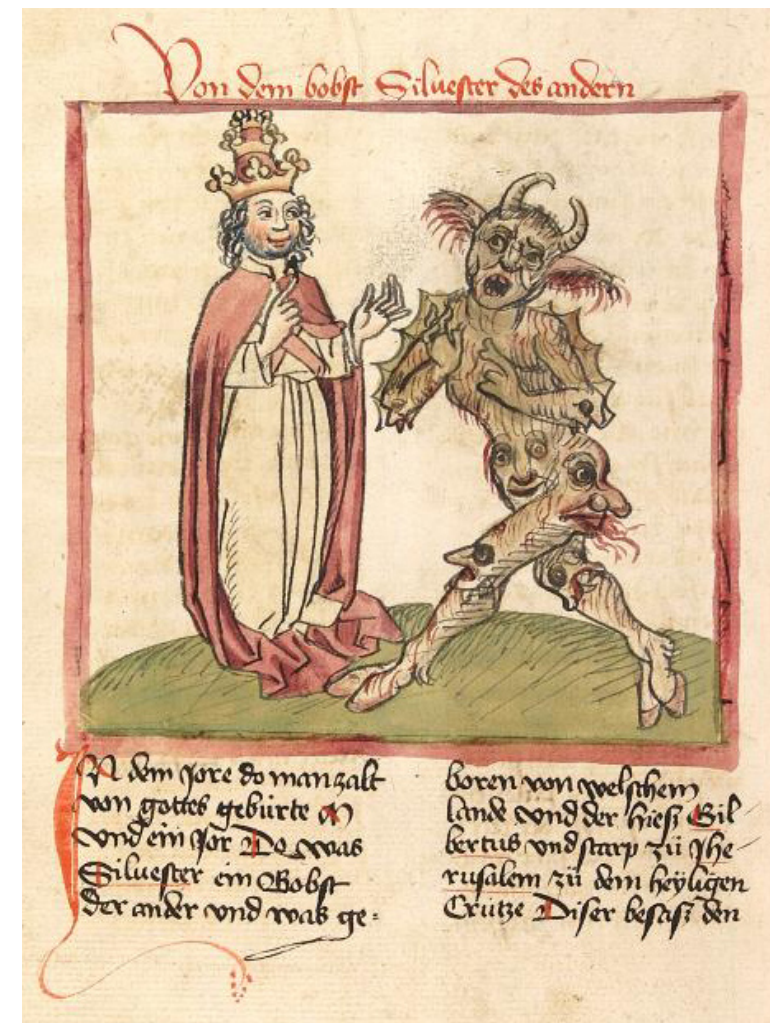 Von dem bobst Siluester des andern
IN dem Jore do man zalt
von gottes gebürte M
vnd ein Jor Do was
Siluester ein Bobst
der ander vnd was ge=
boren von welschem
lande vnd der hiesz Gil-
bertus vnd starp zü Jhe-
rusalem zü dem heÿligen
Crütze Diser besasz den